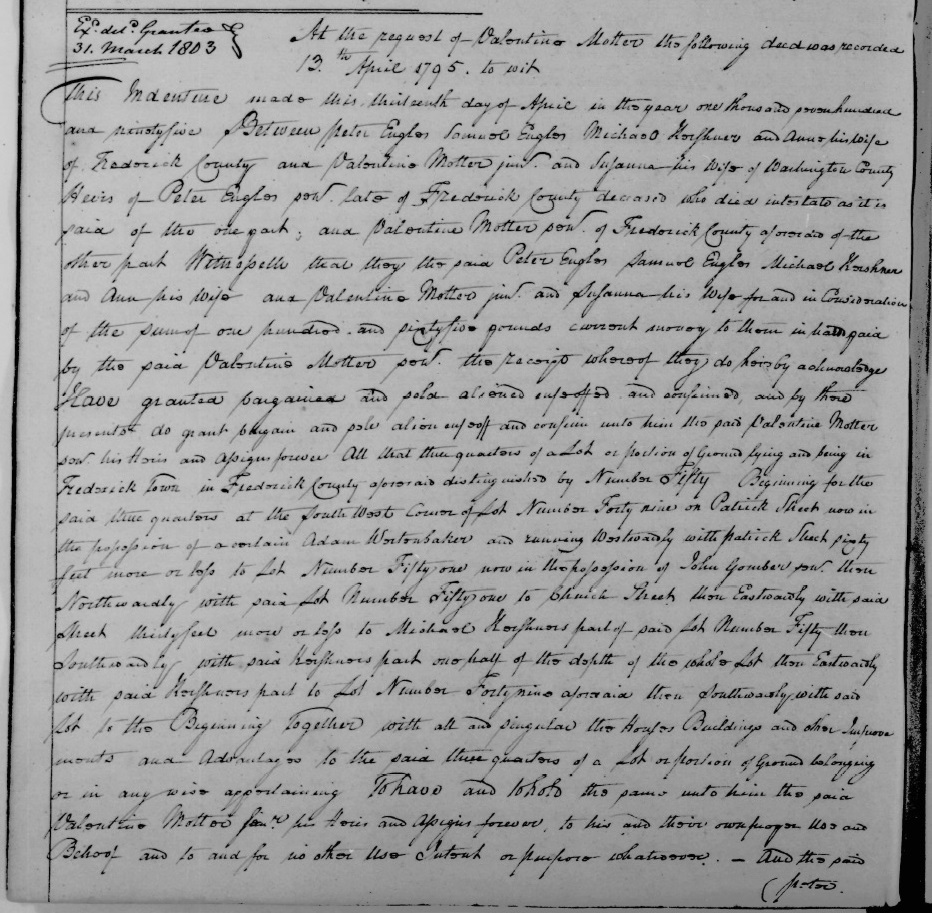 Exd. deld. Grantee
31. March 1803
At the request of Valentine Motter the following deed was recorded
13.th April 1795. to wit
This Indenture made this thirteenth day of April in the year one thousand seven hundred
and ninety five Between Peter Engles Samuel Engles Michael Kershner and Ann his wife
of Frederick County and Valentine Motter junr. and Susanna his Wife of Washington County
Heirs of Peter Engles senr. late of Frederick County deceased who died intestate as it is
said of the one part; and Valentine Motter senr. of Frederick County aforesaid of the
other part Witnesseth that they the said Peter Engles Samuel Engles Michael Kershner
and Ann his Wife and Valentine Motter junr. and Susanna his Wife for and in Consideration
of the sum of one hundred and sixty five pounds current money to them in hand paid
by the said Valentine Motter senr. the receipt whereof they do hereby acknowledge
Have granted bargained and sold aliened enfeoffed and confirmed and by these
presents do grant bargain and sell alien enfeoff and confirm unto him the said Valentine Motter
senr. his Heirs and Assigns forever All that three quarters of a Lot or portion of Ground lying and being in
Frederick Town in Frederick County aforesaid distinguished by Number Fifty Beginning for the
said three quarters at the South West Corner of Lot Number Forty nine on Patrick Street now in
the possession of a certain Adam Wertenbaker and running Westwardly with patrick Street sixty
feet more or less to Lot Number Fifty one now in the possession of John Gomber senr. then
Northwardly with said Lot Number Fifty one to Church Street then Eastwardly with said
Street thirty feet more or less to Michael Kershners part of said Lot Number Fifty then
Southwardly with said Kershners part one half of the depth of the whole Lot then Eastwardly
with said Kershners part to Lot Number Forty nine aforesaid then Southwardly with said
Lot to the Beginning Together with all and singular the Houses Buildings and other Improve
ments and Advantages to the said three quarters of a Lot or portion of Ground belonging
or in any wise appertaining To have and to hold the same unto him the said
Valentine Motter senr. his Heirs and Assigns forever, to his and their own proper Use and
Behoof and to and for no other Use Intent or purpose whatsoever. — And the said
Peter.